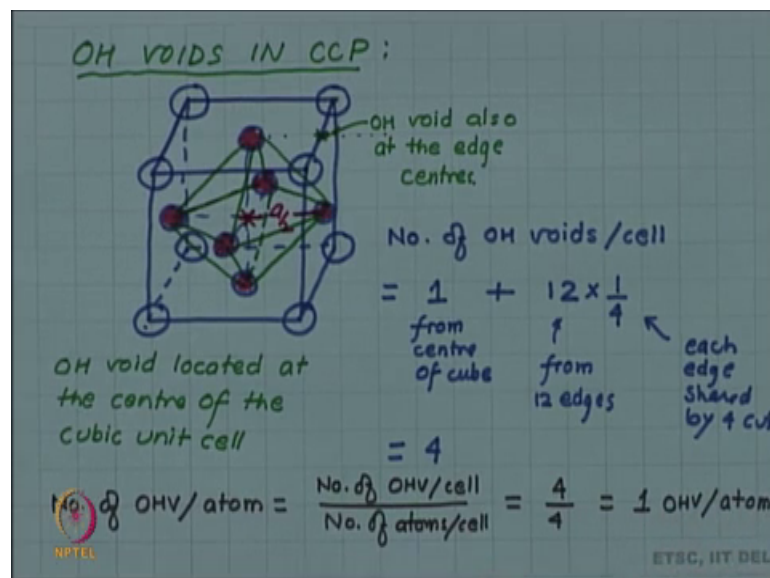 OH VOIDS IN CCP:
OH void also
at the edge
centres.
a/2
No. of OH voids/cell
= 1 + 12 × 1/4
from
centre
of cube
from
12 edges
each
edge
shared
by 4 cu
OH void located at
the centre of the
cubic unit cell
= 4
No. of OHV/atom = No. of OHV/cell / No. of atoms/cell = 4/4 = 1 OHV/atom
NPTEL
ETSC, IIT DEL